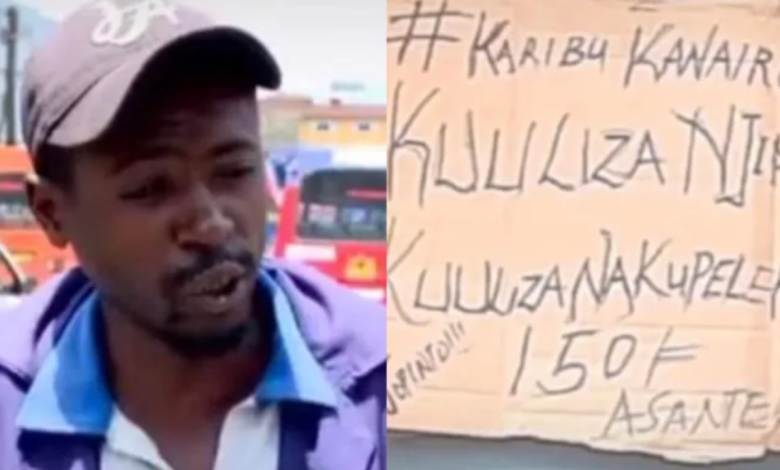 #KARIBU KANAIR
KUULIZA NJI
KUULIZA NA KUPELE
150/=
ASANTE